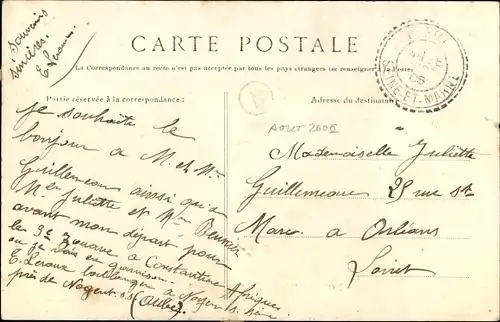 Souvenirs
sincères.
E. Leroux
CARTE POSTALE
La Correspondance au recto n'est pas acceptée par tous les pays étrangers (se renseigner à la Poste)
06
SEINE-ET-MARNE
Partie réservée à la correspondance
Adresse du destinataire
Je souhaite le
bonjour à M. et Mme
Guillemeau ainsi qu'à
Melle Juliette et Mme
avant mon départ pour
le 3e zouave à Constantine Afrique
ou je vais en garnison.
E. Leroux boulanger à Nogent s. Seine
près de Nogent s. S (Aube)
AOUT 2006
Mademoiselle Juliette
Guillemeau 25 rue St
Marc à Orléans
Loiret